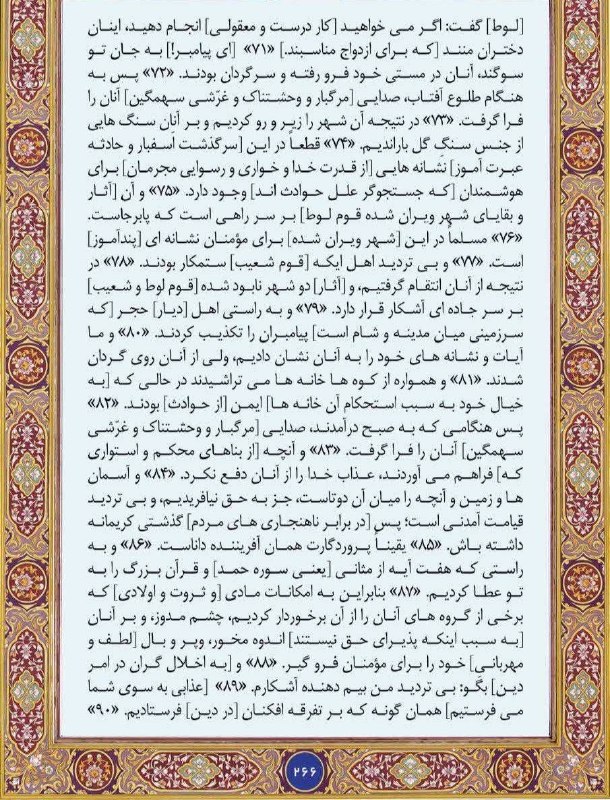 [لوط] گفت: اگر می خواهید [کار درست و معقولی] انجام دهید، اینان
دختران منند [که برای ازدواج مناسبند.] «۷۱» [ای پیامبر!] به جان تو
سوگند، آنان در مستی خود فرو رفته و سرگردان بودند. «۷۲» پس به
هنگام طلوع آفتاب، صدایی [مرگبار و وحشتناک و غرّشی سهمگین] آنان را
فرا گرفت. «۷۳» در نتیجه آن شهر را زیر و رو کردیم و بر آنان سنگ هایی
از جنس سنگِ گل باراندیم. «۷۴» قطعاً در این [سرگذشت اسفبار و حادثه
عبرت آموز] نشانه هایی [از قدرت خدا و خواری و رسوایی مجرمان] برای
هوشمندان [که جستجوگر علل حوادث اند] وجود دارد. «۷۵» و آن [آثار
و بقایای شهر ویران شده قوم لوط] بر سر راهی است که پابرجاست.
«۷۶» مسلماً در این [شهر ویران شده] برای مؤمنان نشانه ای [پندآموز]
است. «۷۷» و بی تردید اهل ایکه [قوم شعیب] ستمکار بودند. «۷۸» در
نتیجه از آنان انتقام گرفتیم، و [آثار] دو شهر نابود شده [قوم لوط و شعیب]
بر سر جاده ای آشکار قرار دارد. «۷۹» و به راستی اهل [دیار] حجر [که
سرزمینی میان مدینه و شام است] پیامبران را تکذیب کردند. «۸۰» و ما
آیات و نشانه های خود را به آنان نشان دادیم، ولی از آنان روی گردان
شدند. «۸۱» و همواره از کوه ها خانه ها می تراشیدند در حالی که [به
خیال خود به سبب استحکام آن خانه ها] ایمن [از حوادث] بودند. «۸۲»
پس هنگامی که به صبح درآمدند، صدایی [مرگبار و وحشتناک و غرّشی
سهمگین] آنان را فرا گرفت. «۸۳» و آنچه [از بناهای محکم و استواری
که] فراهم می آوردند، عذاب خدا را از آنان دفع نکرد. «۸۴» و آسمان
ها و زمین و آنچه را میان آن دوتاست، جز به حق نیافریدیم، و بی تردید
قیامت آمدنی است؛ پس [در برابر ناهنجاری های مردم] گذشتی کریمانه
داشته باش. «۸۵» یقیناً پروردگارت همان آفریننده داناست. «۸۶» و به
راستی که هفت آیه از مثانی [یعنی سوره حمد] و قرآن بزرگ را به
تو عطا کردیم. «۸۷» بنابراین به امکانات مادی [و ثروت و اولادی] که
برخی از گروه های آنان را از آن برخوردار کردیم، چشم مدوز، و بر آنان
[به سبب اینکه پذیرای حق نیستند] اندوه مخور، وپر و بال [لطف و
مهربانی] خود را برای مؤمنان فرو گیر. «۸۸» و [به اخلال گران در امر
دین] بگو: بی تردید من بیم دهنده آشکارم. «۸۹» [عذابی به سوی شما
می فرستیم] همان گونه که بر تفرقه افکنان [در دین] فرستادیم. «۹۰»
۲۶۶